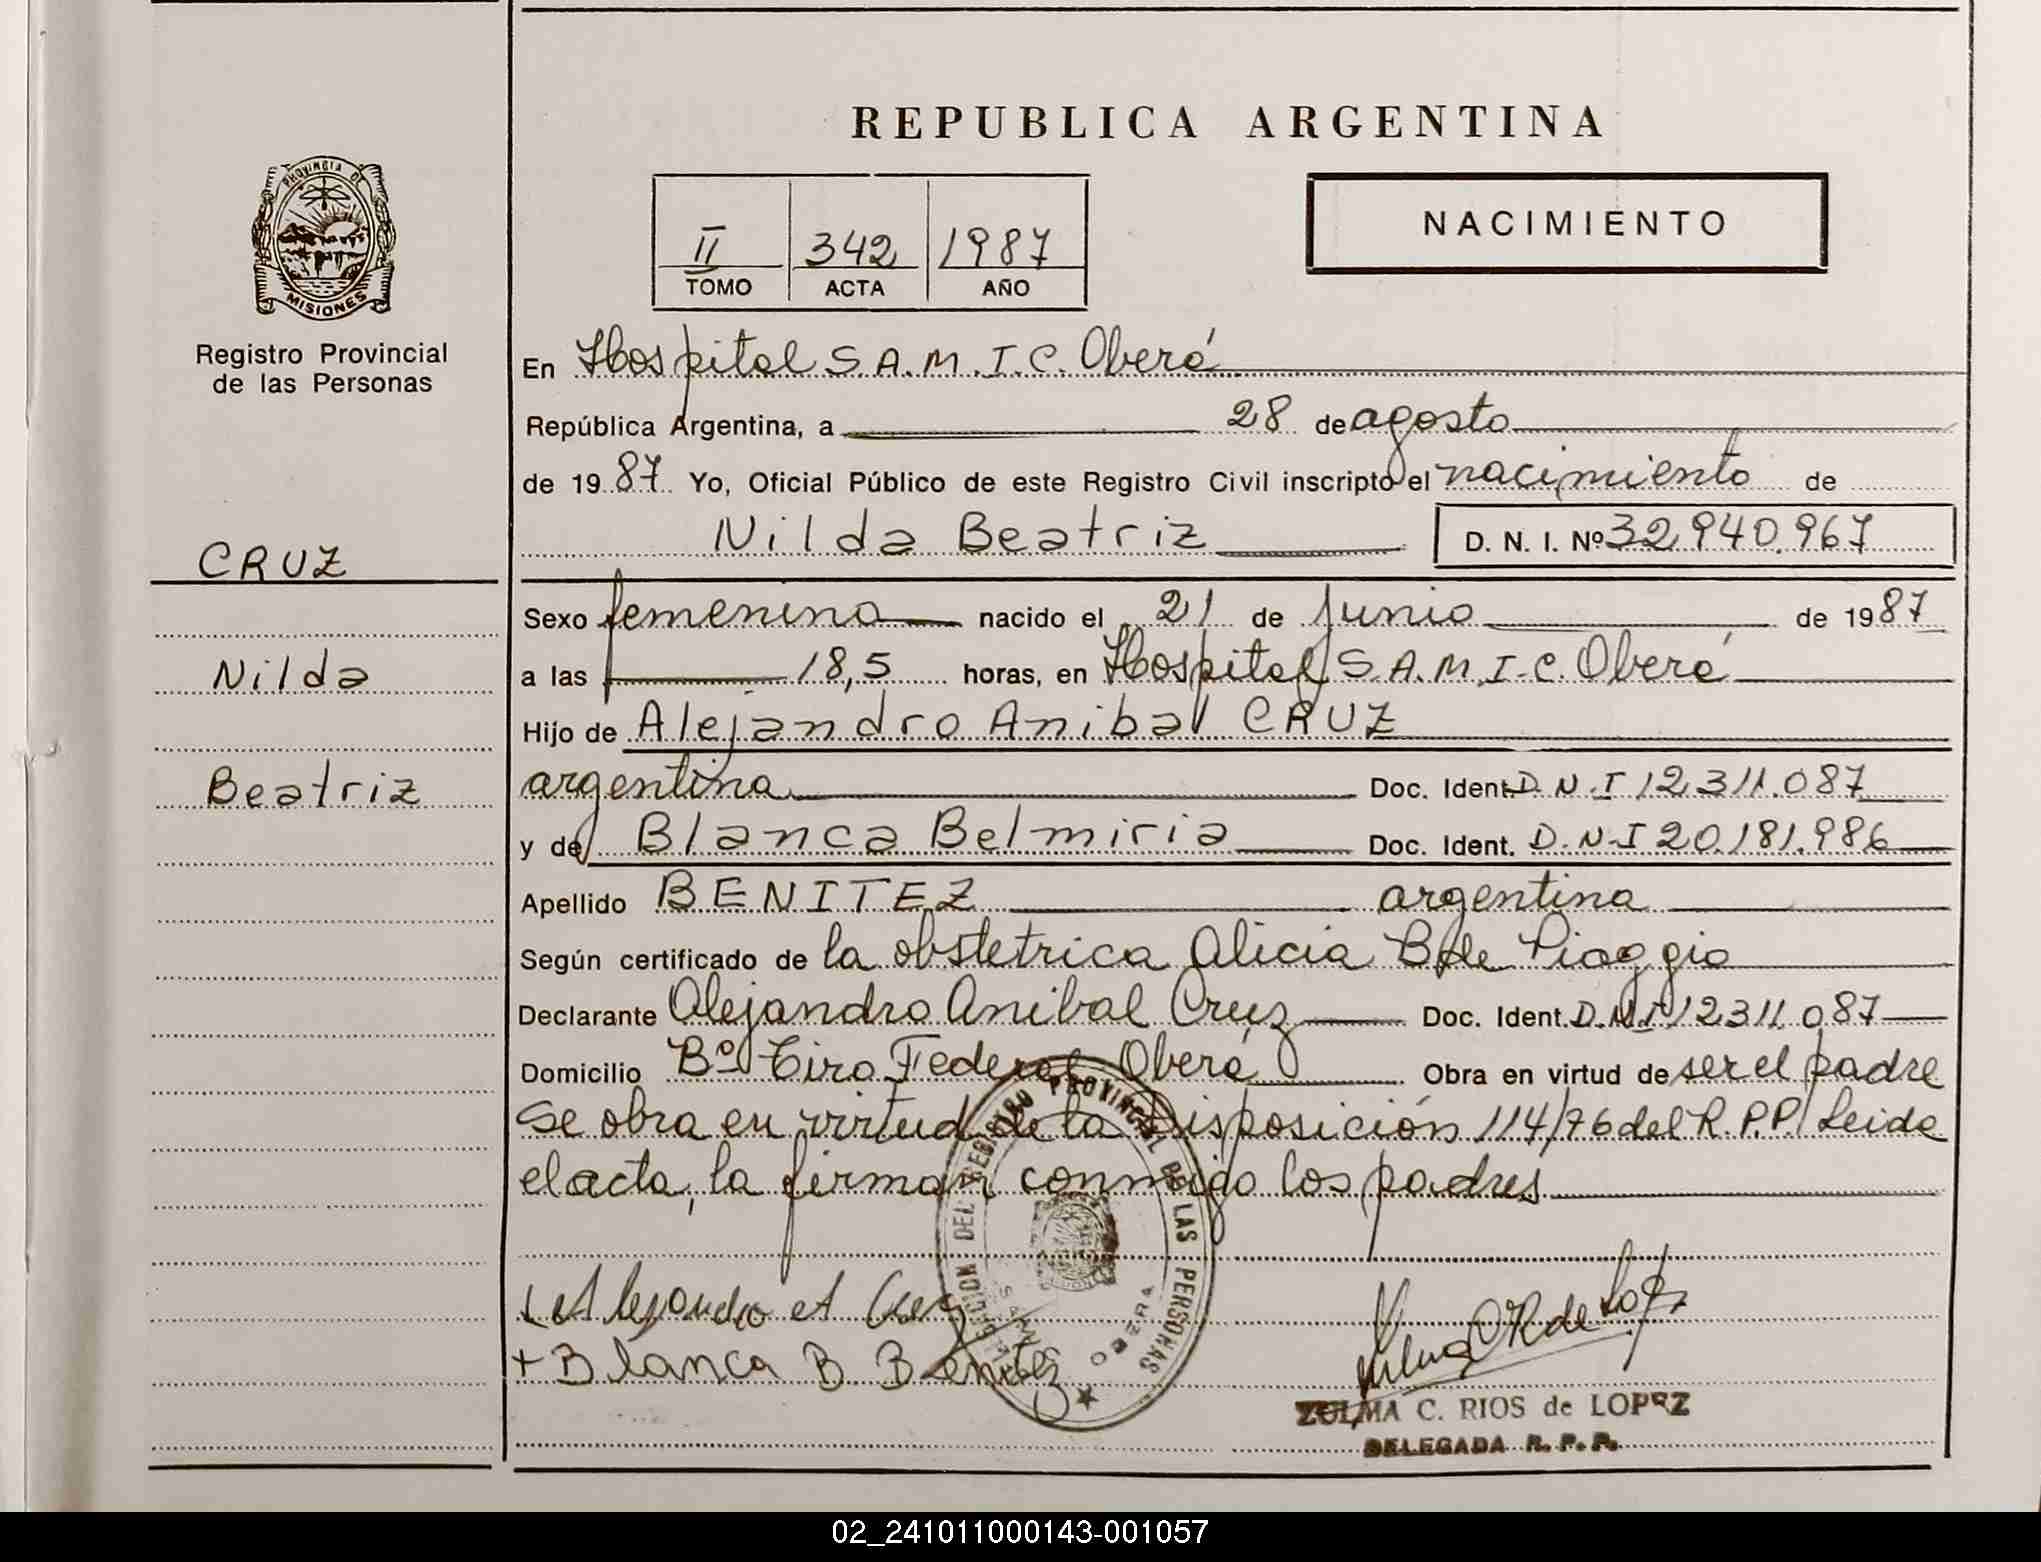 REPUBLICA ARGENTINA
PROVINCIA DE
MISIONES
Registro Provincial
de las Personas
II 342 1987
TOMO ACTA AÑO
NACIMIENTO
En Hospital S.A.M.I.C. Oberá
República Argentina, a 28 de agosto
de 1987 Yo, Oficial Público de este Registro Civil inscripto el nacimiento de
Nilda Beatriz D. N. I. Nº 32.940.967
CRUZ
Nilda
Beatriz
Sexo femenino nacido el 21 de Junio de 1987
a las 18,5 horas, en Hospital S.A.M.I.C. Oberá
Hijo de Alejandro Anibal CRUZ
argentina Doc. Ident. D.N.I 12.311.087
y de Blanca Belmiria Doc. Ident. D.N.I 20.181.986
Apellido BENITEZ argentina
Según certificado de la obstetrica Alicia B de Piaggio
Declarante Alejandro Anibal Cruz Doc. Ident. D.N.I 12.311.087
Domicilio Bº Tiro Federal Oberá Obra en virtud de ser el padre
se obra en virtud de la Disposición 114/76 del R.P.P/ Leida
el acta, la firman conmigo los padres
DEL REGISTRO PROVINCIAL DE LAS PERSONAS
OBERA
Alejandro A Cruz
+ Blanca B Benitez
ZULMA C. RIOS de LOPEZ
DELEGADA R. P. P.
02_241011000143-001057